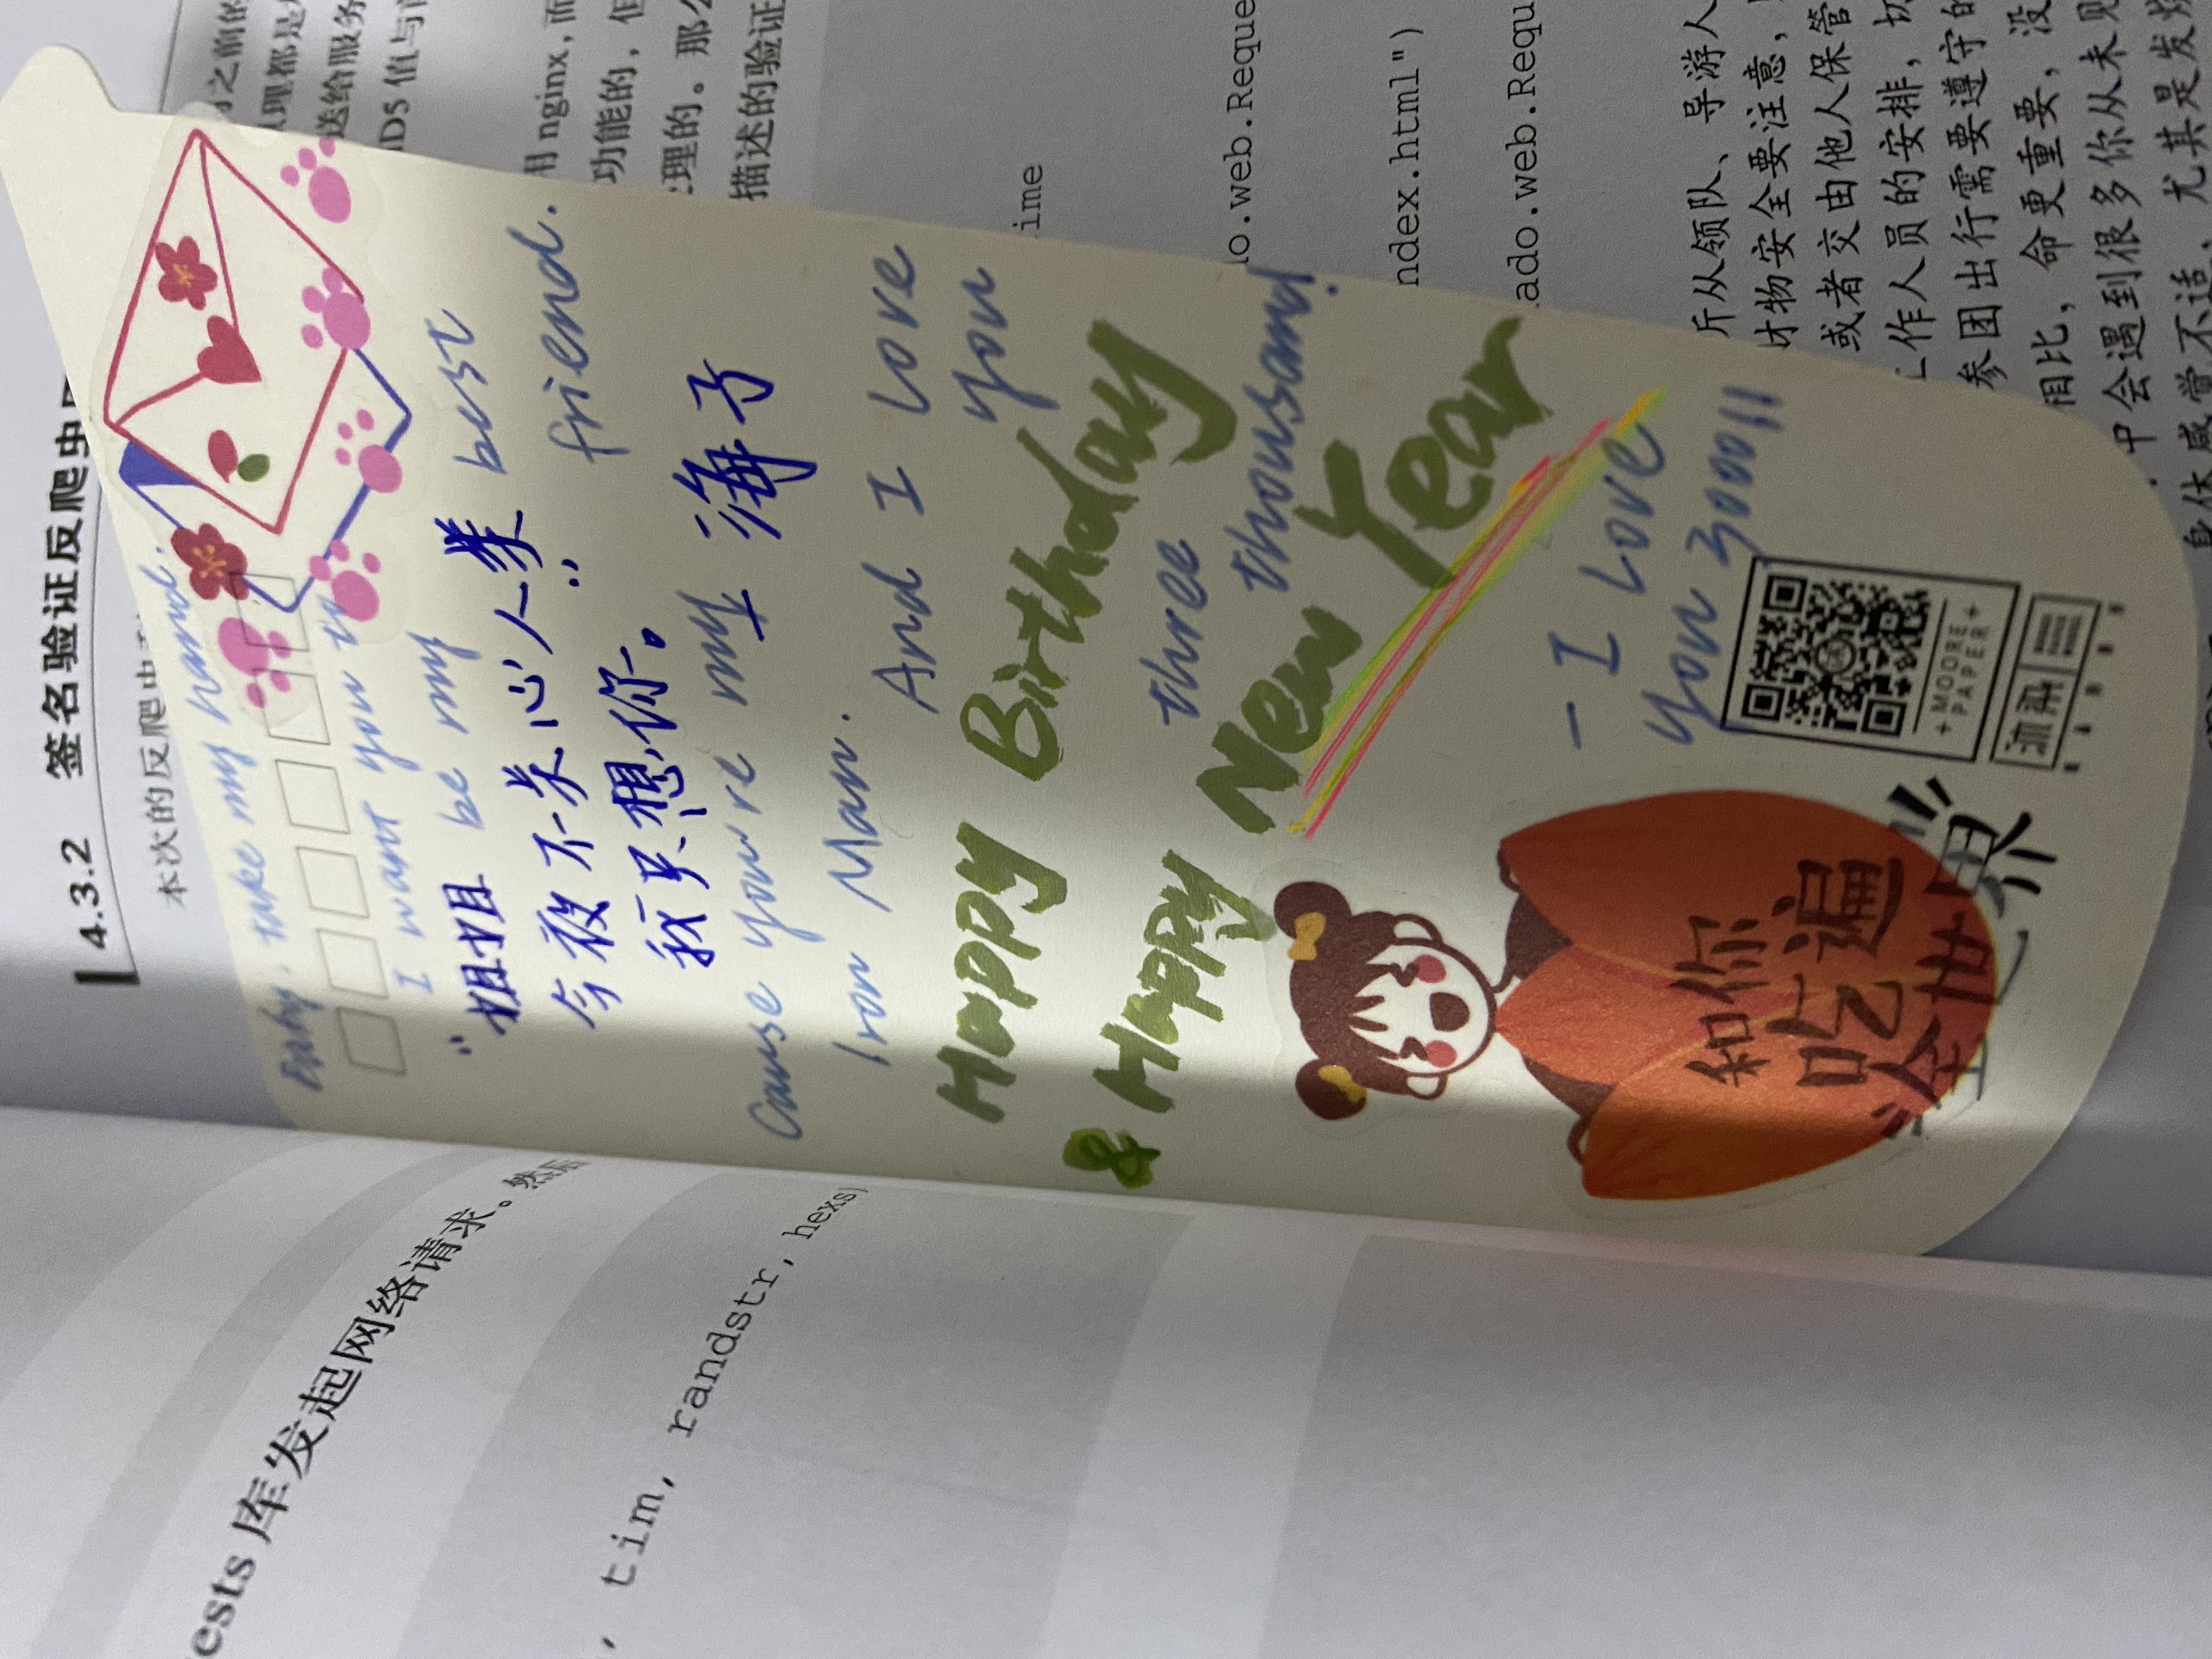 ests 库发起网络请求。然后
, tim, randstr, hexs
4.3.2 签名验证反爬虫
本次的反爬虫
之前的
理都是
送给服务
值与
用 nginx，而
功能的，但
理的。那么
描述的验证
ime
o.web.Reque
ndex.html")
ado.web.Requ
从领队、导游人
财物安全要注意，
或者交由他人保管
工作人员的安排，切
参团出行需要遵守的
相比，命更重要，没
中会遇到很多你从未见
身体感觉不适，尤其是发烧
Baby, take my hand.
I want you to
be my best
friend.
"姐姐
今夜不关心人类
我只想你。"
— 海子
Cause you're my
Iron Man.
And I love
you
Happy Birthday
three thousand!
& Happy New Year
— I Love
you 3000!!
和你
吃遍
全世界
+MOORE+
PAPER